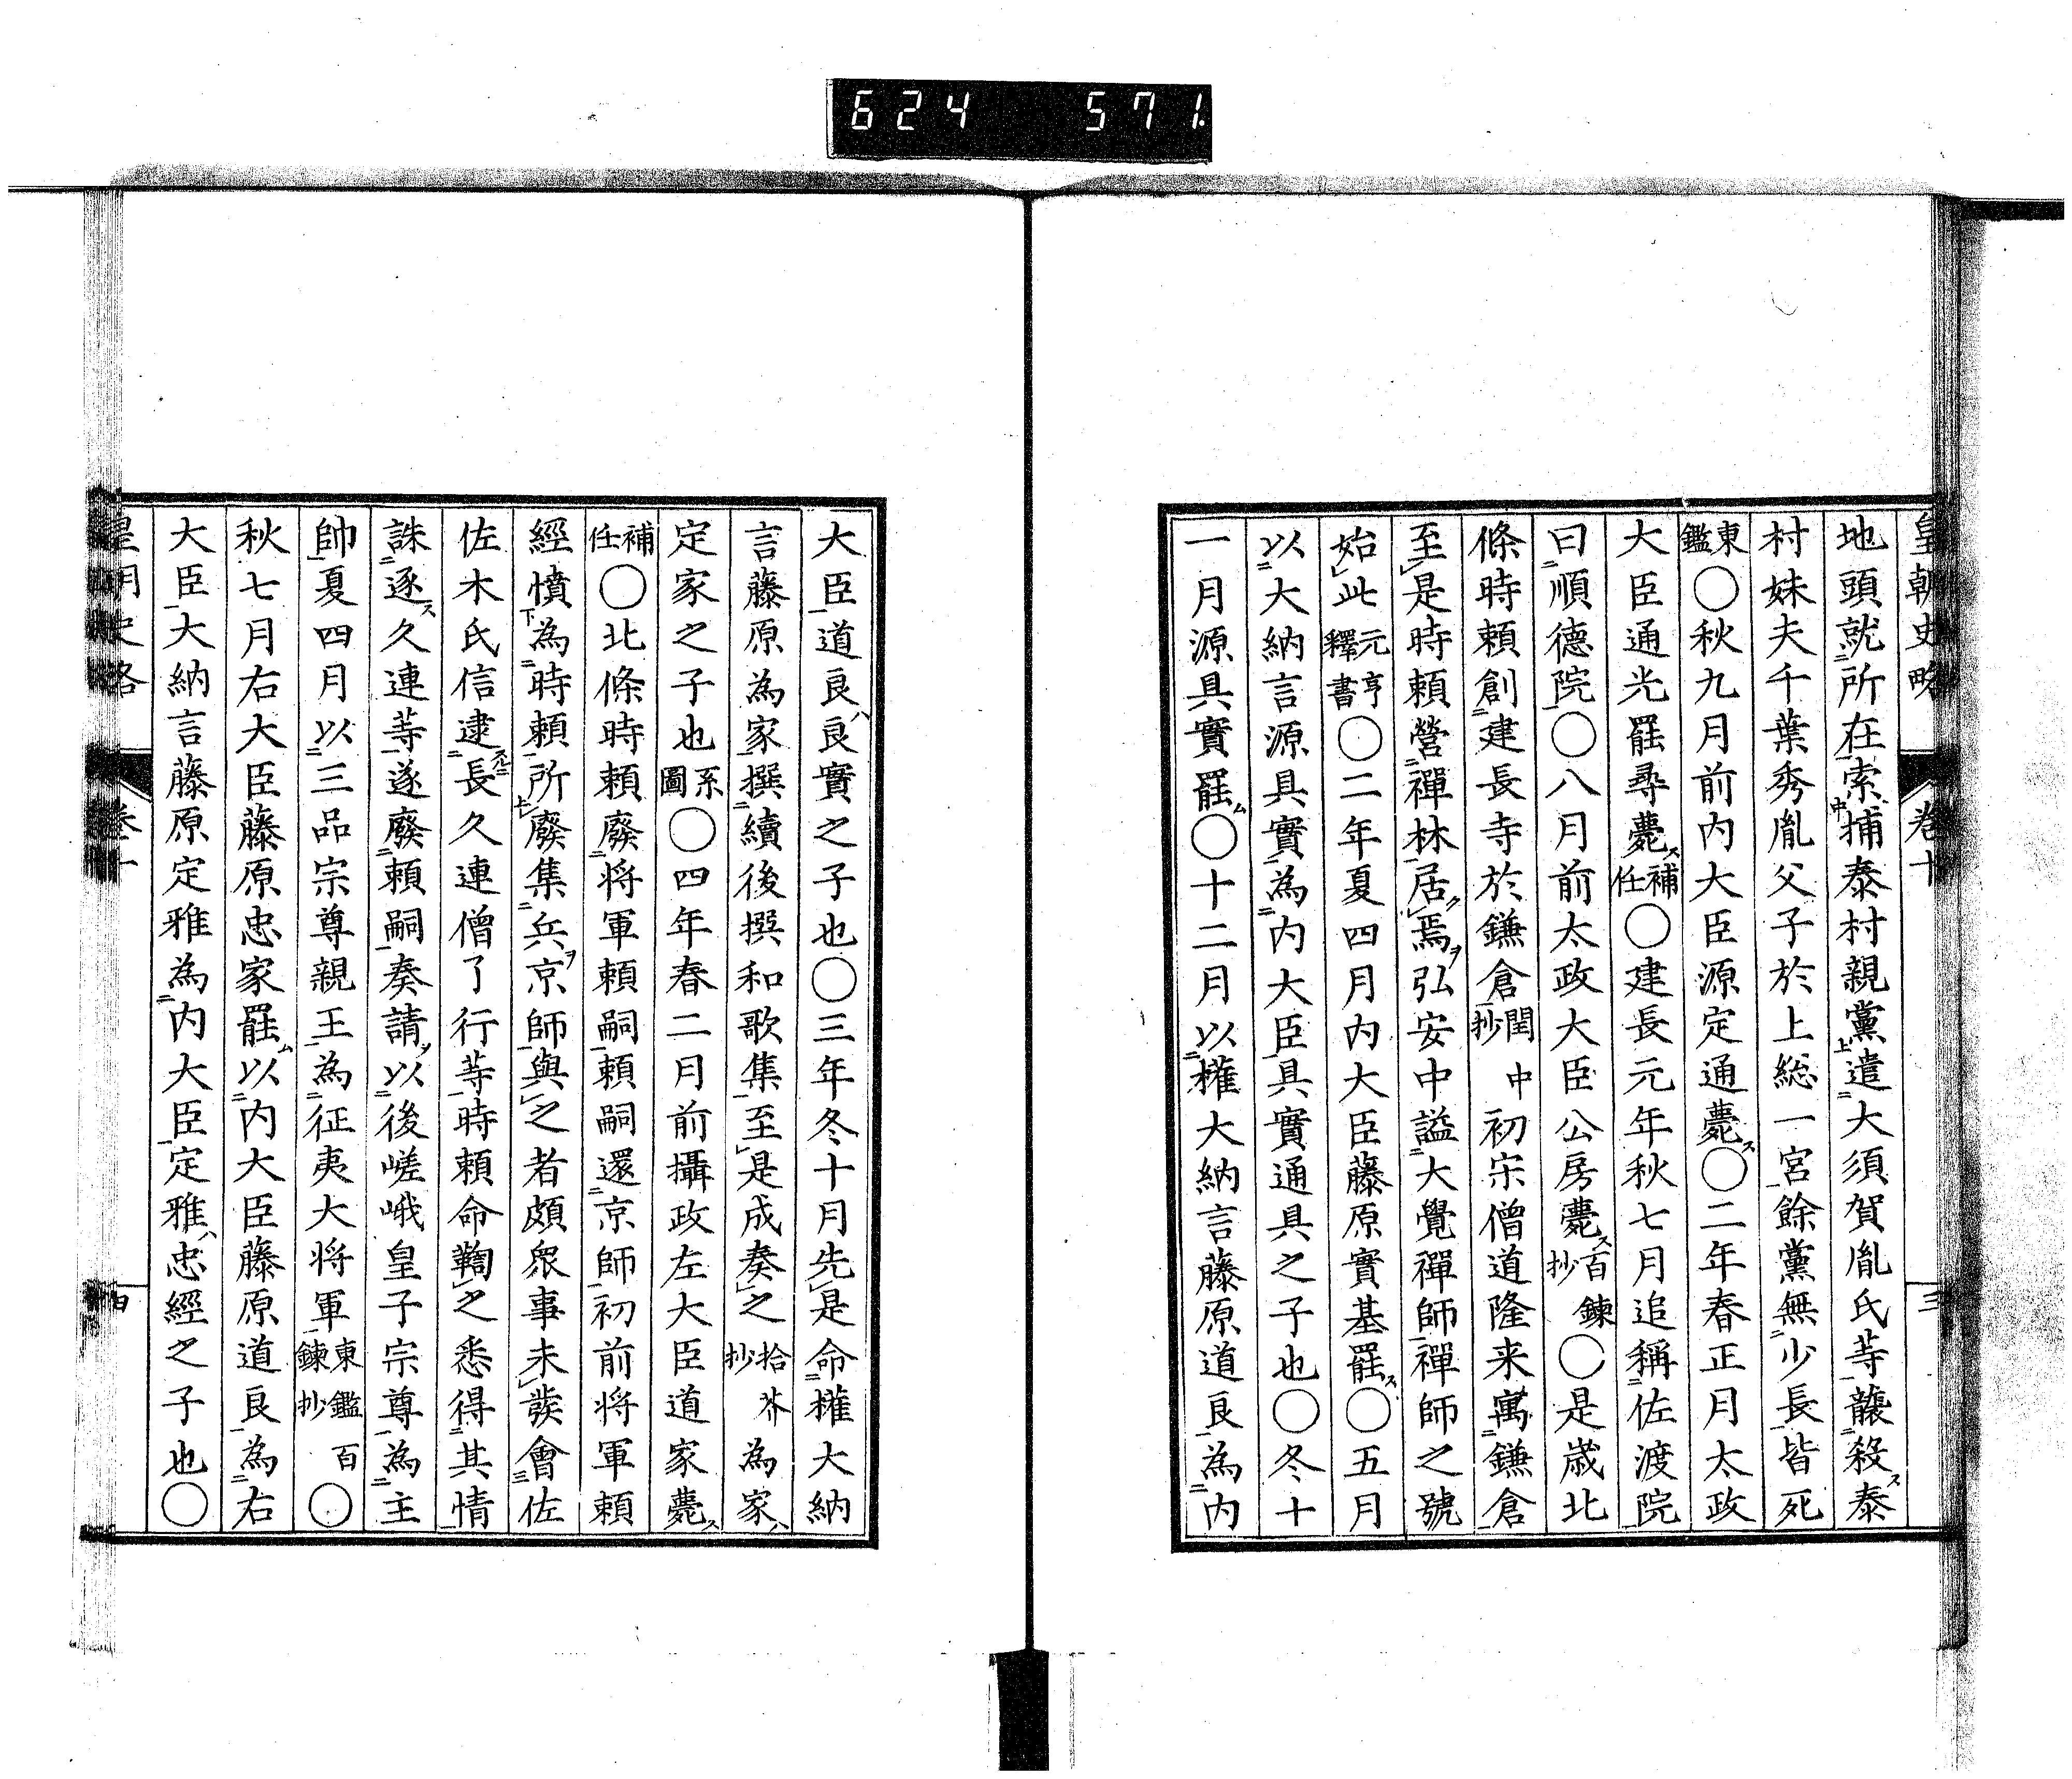 624 571
皇朝史略 卷十 三
地頭就所在索捕泰村親黨遣大須賀胤氏等襲殺泰
村妹夫千葉秀胤父子於上総一宮餘黨無少長皆死
東鑑〇秋九月前内大臣源定通薨〇二年春正月太政
大臣通光罷尋薨補任〇建長元年秋七月追稱佐渡院
曰順德院〇八月前太政大臣公房薨百鍊抄〇是歳北
條時頼創建長寺於鎌倉閏中抄初宋僧道隆来寓鎌倉
至是時頼營禪林居焉弘安中謚大覺禪師禪師之號
始此元亨釋書〇二年夏四月内大臣藤原實基罷〇五月
以大納言源具實為内大臣具實通具之子也〇冬十
一月源具實罷〇十二月以權大納言藤原道良為内
大臣道良良實之子也〇三年冬十月先是命權大納
言藤原為家撰續後撰和歌集至是成奏之拾芥抄為家
定家之子也系圖〇四年春二月前攝政左大臣道家薨
補任〇北條時頼廢将軍頼嗣頼嗣還京師初前将軍頼
經憤為時頼所廢集兵京師與之者頗衆事未發會佐
佐木氏信逮長久連僧了行等時頼命鞫之悉得其情
誅逐久連等遂廢頼嗣奏請以後嵯峨皇子宗尊為主
帥夏四月以三品宗尊親王為征夷大将軍東鑑百鍊抄〇
秋七月右大臣藤原忠家罷以内大臣藤原道良為右
大臣大納言藤原定雅為内大臣定雅忠經之子也〇
皇朝史略 卷十